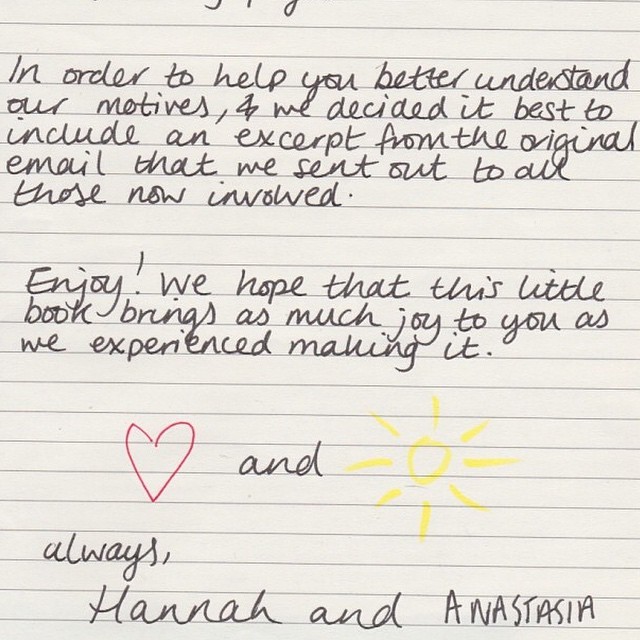 In order to help you better understand
our motives, & we decided it best to
include an excerpt from the original
email that we sent out to all
those now involved.
Enjoy! We hope that this little
book brings as much joy to you as
we experienced making it.
and
always,
Hannah and ANASTASIA